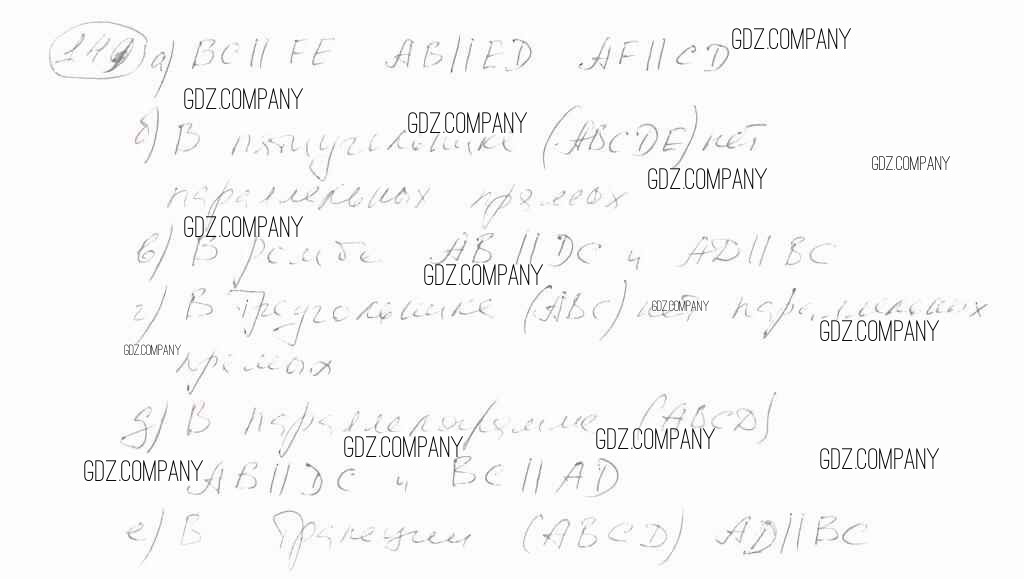 149 а) BC || FE AB || ED AF || CD GDZ.COMPANY
GDZ.COMPANY GDZ.COMPANY
б) В пятиугольнике (ABCDE) нет GDZ.COMPANY
параллельных прямых GDZ.COMPANY
GDZ.COMPANY
в) В ромбе AB || DC и AD || BC
GDZ.COMPANY
г) В треугольнике (ABC) нет параллельных GDZ.COMPANY
GDZ.COMPANY GDZ.COMPANY
прямых
д) В параллелограмме (ABCD)
GDZ.COMPANY GDZ.COMPANY GDZ.COMPANY GDZ.COMPANY
AB || DC и BC || AD
е) В трапеции (ABCD) AD || BC